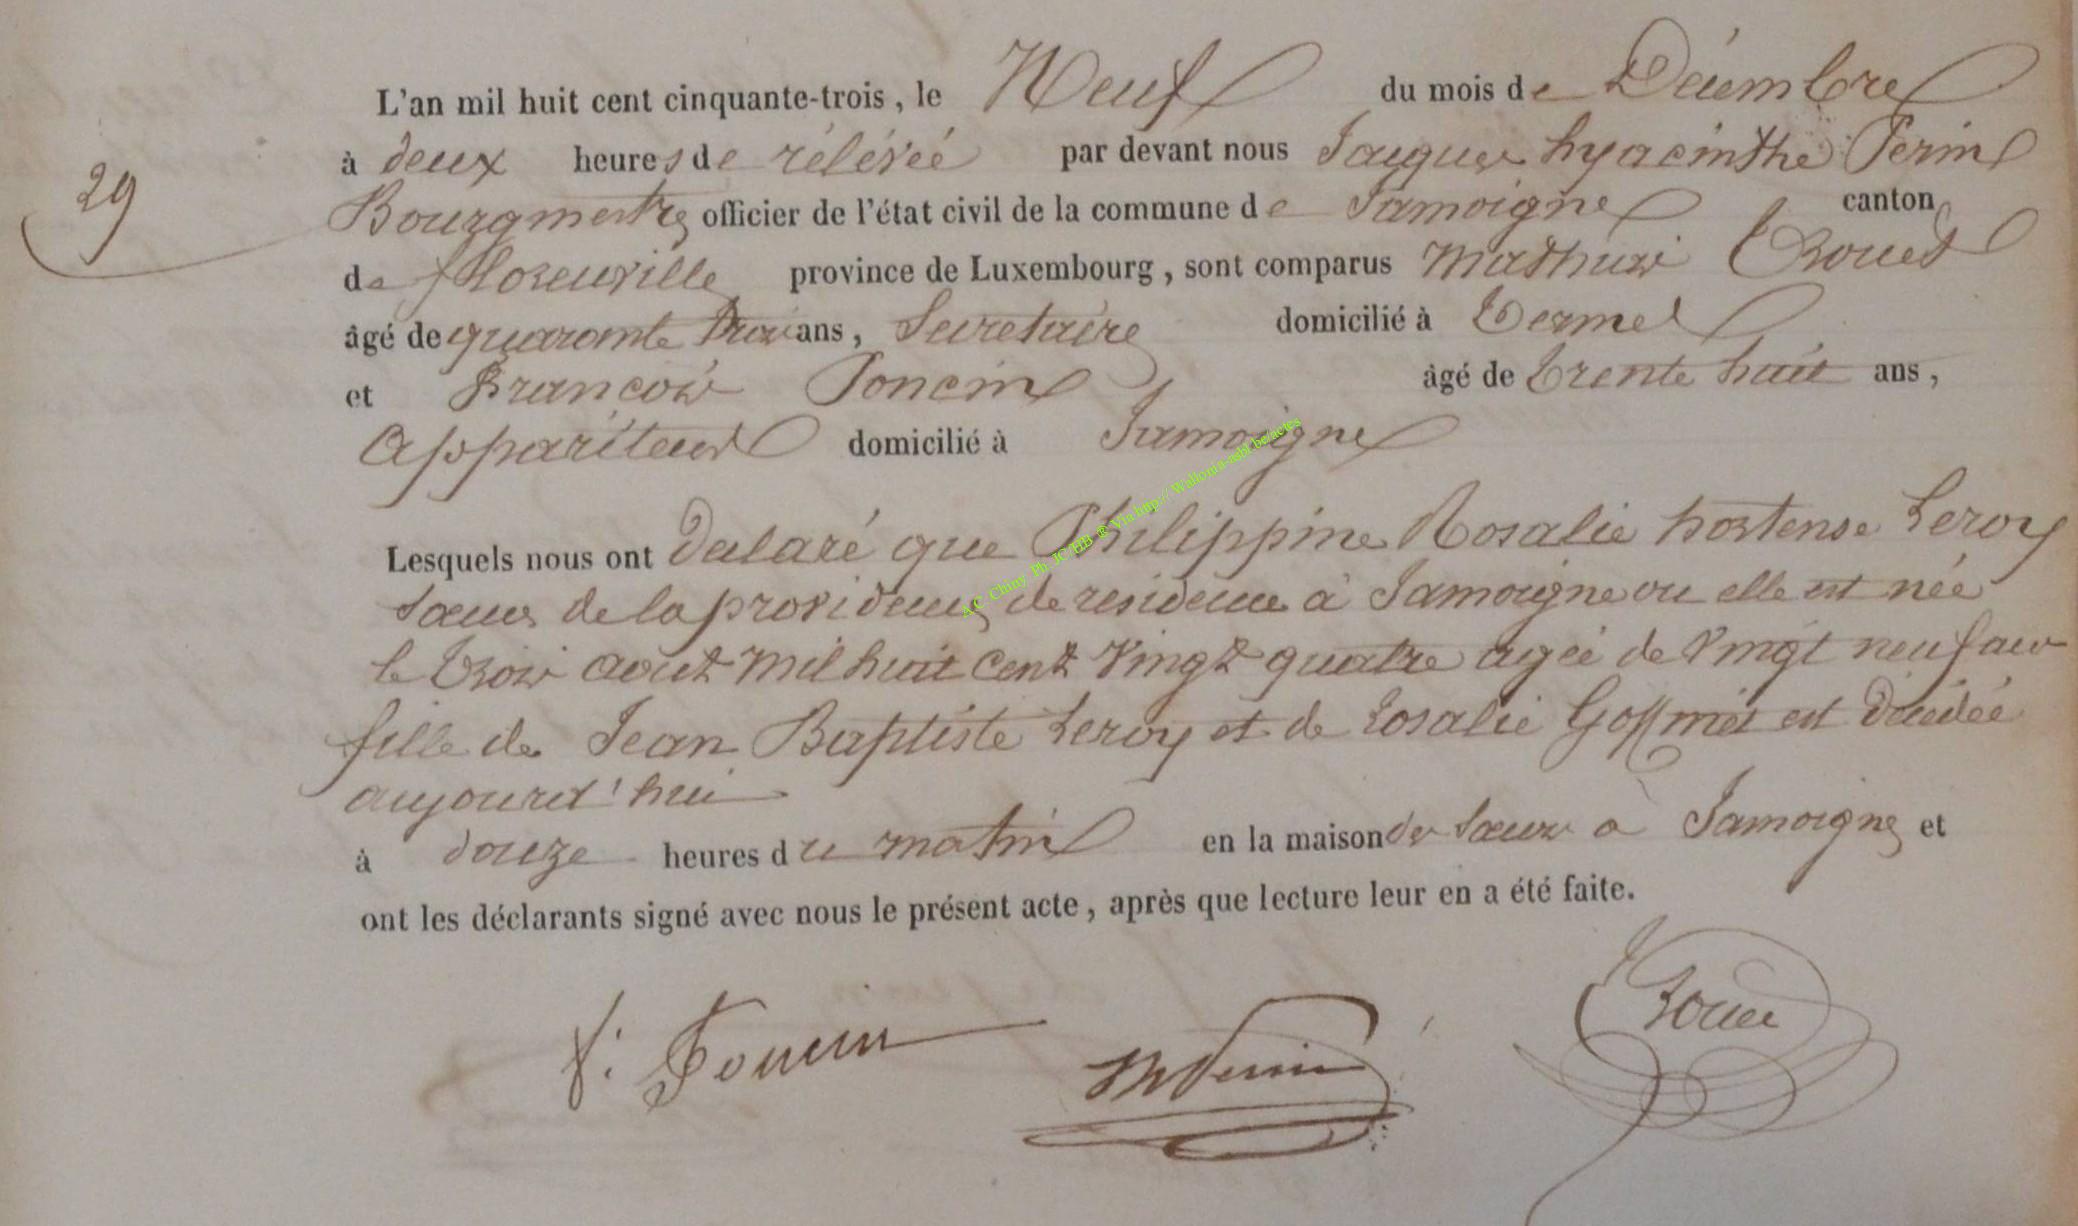 L'an mil huit cent cinquante-trois, le Neuf du mois de Décembre
29
à deux heures de rélévée par devant nous Jacques hyacinthe Perin
Bourgmestre officier de l'état civil de la commune de Jamoigne canton
de florenville province de Luxembourg, sont comparus Mathurin Roued
âgé de quarante trois ans, Secretaire domicilié à Termes
et François Poncin âgé de trente huit ans,
Appariteur domicilié à Jamoigne
A.C. Chiny Ph. JC HB @ Via http// Wallonia-asbl.be/actes
Lesquels nous ont déclaré que Philippine Rosalie hortense Leroy
sœur de la providence de residence à Jamoigne ou elle est née
le trois aout mil huit cent vingt quatre agée de vingt neuf ans
fille de Jean Baptiste Leroy et de Rosalie est décédée
aujourd'hui
à douze heures du matin en la maison des sœurs a Jamoigne et
ont les déclarants signé avec nous le présent acte, après que lecture leur en a été faite.
f: Poncin Perin